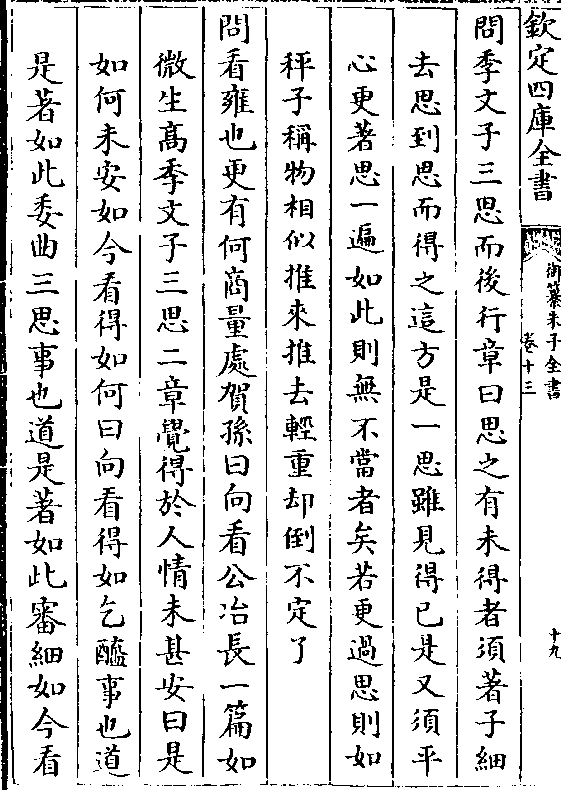 欽定四庫全書
御纂朱子全書
卷十三
十九
問季文子三思而後行章曰思之有未得者須著子細
去思到思而得之這方是一思雖見得已是又須平
心更著思一遍如此則無不當者矣若更過思則如
秤子稱物相似推來推去輕重却倒不定了
問看雍也更有何商量處賀孫曰向看公冶長一篇如
微生髙季文子三思二章覺得於人情未甚安曰是
如何未安如今看得如何曰向看得如乞醯事也道
是著如此委曲三思事也道是著如此審細如今看